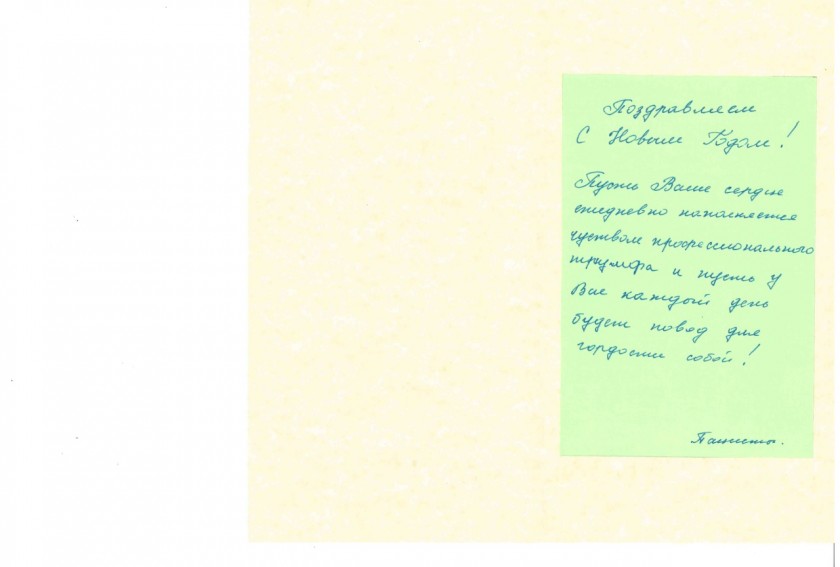 Поздравляем
С Новым Годом!
Пусть Ваше сердце
ежедневно наполняется
чуством профессионального
триумфа и пусть у
Вас каждый день
будет повод для
гордости собой!